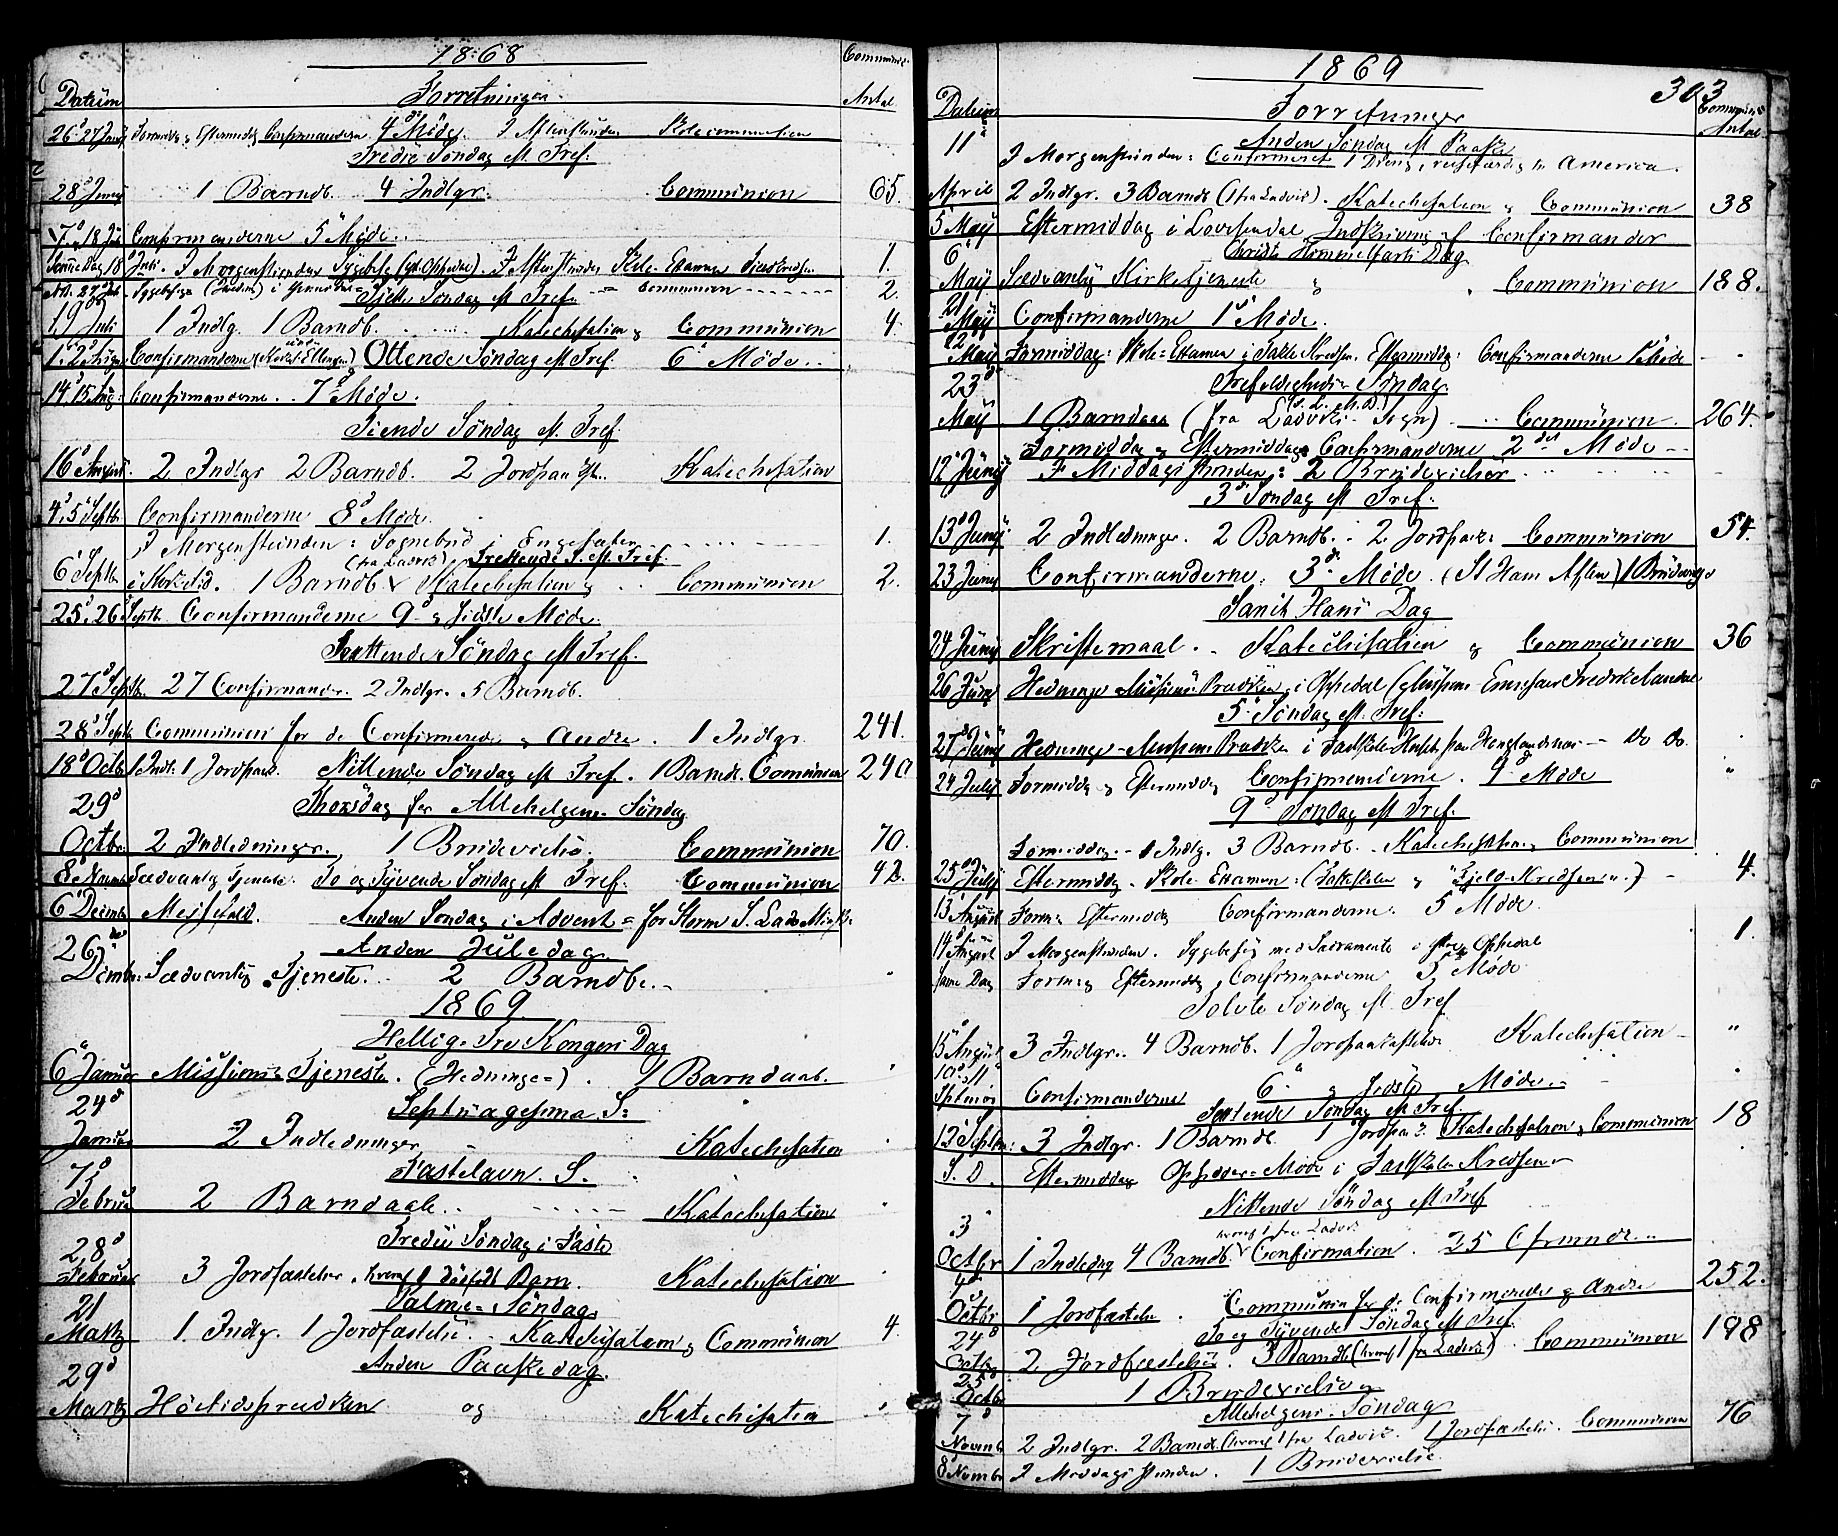 1868
Communic.
Datum Forretninger Antal
26 & 27 Juny Formidd. & Eftermiddag Confirmanderne 4d Møde. I Aftenstunden Skolecommission
Tredie Søndag eft. Tref.
28d Juny 1 Barndb. 4 Indlgr. Communion 65.
17 & 18 Juli Confirmanderne 5d Møde.
Samme Dag 18 Juli. I Morgenstunden Sygebesøg I Aftenstunden Skole-Examen 1.
Sygebesøg Communion 2.
Sjette Søndag eft Tref.
19d Juli 1 Indlg. 1 Barndb. Katechisation & Communion 4.
1 & 2 Aug Confirmanderne Ottende Søndag eft Tref. 6d Møde.
14 & 15 Aug: Confirmanderne. 7d Møde.
Tiende Søndag eft. Tref.
16d August. 2 Indlgr 2 Barndb. 2 Jordpaakst. Katechisation
4 & 5 Septb. Confirmanderne 8d Møde.
I Morgenstunden: Sognebud i Engesæter 1.
(fra Ladvik) Trettende S. eft. Tref.
6 Septb. 1 Barndb. Katechisation & Communion 2.
25 & 26 Septb. Confirmanderne 9d & sidste Møde.
Søndag eft Tref.
27d Septb. 27 Confirmander. 2 Indlgr. 5 Barndb.
28d Septb Communion for de Confirmerede & Andre. 1 Indlgr. 241.
18d Octb. 1 Indl. 1 Jordpaak. Nittende Søndag eft Tref. 1 Barndb. Communion 240
29d Thorsdag før Allehelgens Søndag
Octbr. 2 Indledninger. 1 Brudevielse. Communion 70.
8d Novemb Sædvanlig Tjeneste. To og Tyvende Søndag eft Tref. Communion 42.
6 Decemb Messefald. Anden Søndag i Advent = for Storm
26d Anden Juledag
Decemb. Sædvanlig Tjeneste. 2 Barndb.
1869.
Hellig-Tre Kongers Dag
6d Januar Missions-Tjeneste. (Hedninge=). 1 Barndaab.
24d Septuagesima S:
Januar 2 Indledninger Katechisation
7d Fastelavn. S.
Februar 2 Barndaab. Katechisation
28d Tredie Søndag i Faste
Februar 3 Jordfæstelser, hvoraf 1 dødfødt Barn. Katechisation
21 Palme=Søndag
Martz 1. Indlg. 1 Jordfæstelse. Katechisation & Communion 4.
29d Anden Paaskedag.
Martz Høitidsprædiken og Katechisation
1869
303
Communic
Datum Forretninger Antal
11d Anden Søndag eft Paaske
I Morgenstunden: Confirmeret 1 Dreng, reisefærdig til America.
April 2 Indlgr. 3 Barndb (fra Ladvik). Katechisation & Communion 38
5 Maÿ Eftermiddag i Lovisendal Indskrivning af Confirmander
6d Christi Himmelfarts Dag
Maÿ Sædvanlig Kirketjeneste & Communion 188.
21 Maÿ Confirmanderne 1d Møde.
22 Maÿ Formiddag: Skole=Examen Eftermiddag: Confirmanderne
23d Trefoldigheds Søndag
Maÿ 1 Barndaab (fra Ladviks Sogn) Communion. 264.
Formiddag & Eftermiddags Confirmanderne 2det Møde
12 Junÿ I Middagsstunden: 2 Brudevielser
3d Søndag eft Tref:
13d Junÿ 2 Indledninger. 2 Barndb. 2 Jordpaak: Communion 54.
23 Juny Confirmanderne. 3d Møde. (St Hans Aften) 1 Brudevielse
Sanct Hans Dag
24 Junÿ Skriftemaal. Katechisation & Communion 36
26 Juny Hedninge Missions Prædiken i Oppedal
5 Søndag eft. Tref:
27d Junÿ Hedninge-Missions Prædiken i Do Do.
24 Julÿ Formiddg & Eftermiddg Confirmanderne. 4d Møde
9d Søndag eft Tref.
Formiddag - 1 Indlg. 3 Barndb. Katechisation, Communion
25d Julÿ Eftermiddg. Skole-Examen: 4.
13 August Form: & Eftermiddg Confirmanderne: 5 Møde
14 August I Morgenstunden. Sygebesøg med Sacramente i Oppedal 1.
Same Dag Form & Eftermiddg Confirmanderne Møde
Tolvte Søndag eft Tref
15d August 3 Indlgr. 4 Barndb. 1 Jordpaakastelse Katechisation "
10 & 11 Septmbr Confirmanderne 6d & sidste Møde.
Søndag eft Tref
12 Septbr: 3 Indlgr. 1 Barndb. 1 Jordpaak. Katechisation & Communion 18
S. D. Eftermiddag Møde i Kredsen
Nittende Søndag eft Tref
3 hvoraf 1 fra Ladvik
Octbr 1 Indledng 4 Barndb. Confirmation. 25 Cfrmnde.
4d Octbr 1 Jordfæstelse. Communion for de Confirmerede & Andre 252.
24d To og Tyvende Søndag eft Tref.
Octbr 2 Jordfæstelser. 3 Barndb (hvoraf 1 fra Ladvik) Communion 198
25d Octbr 1 Brudevielse
7d Allehelgens-Søndag
Novemb 2 Indlgr. 2 Barndb. (hvoraf 1 fra Ladvik. 1 Jordfæstelse. Communion 76
8d Novmbr I Middagsstunden. 1 Brudevielse